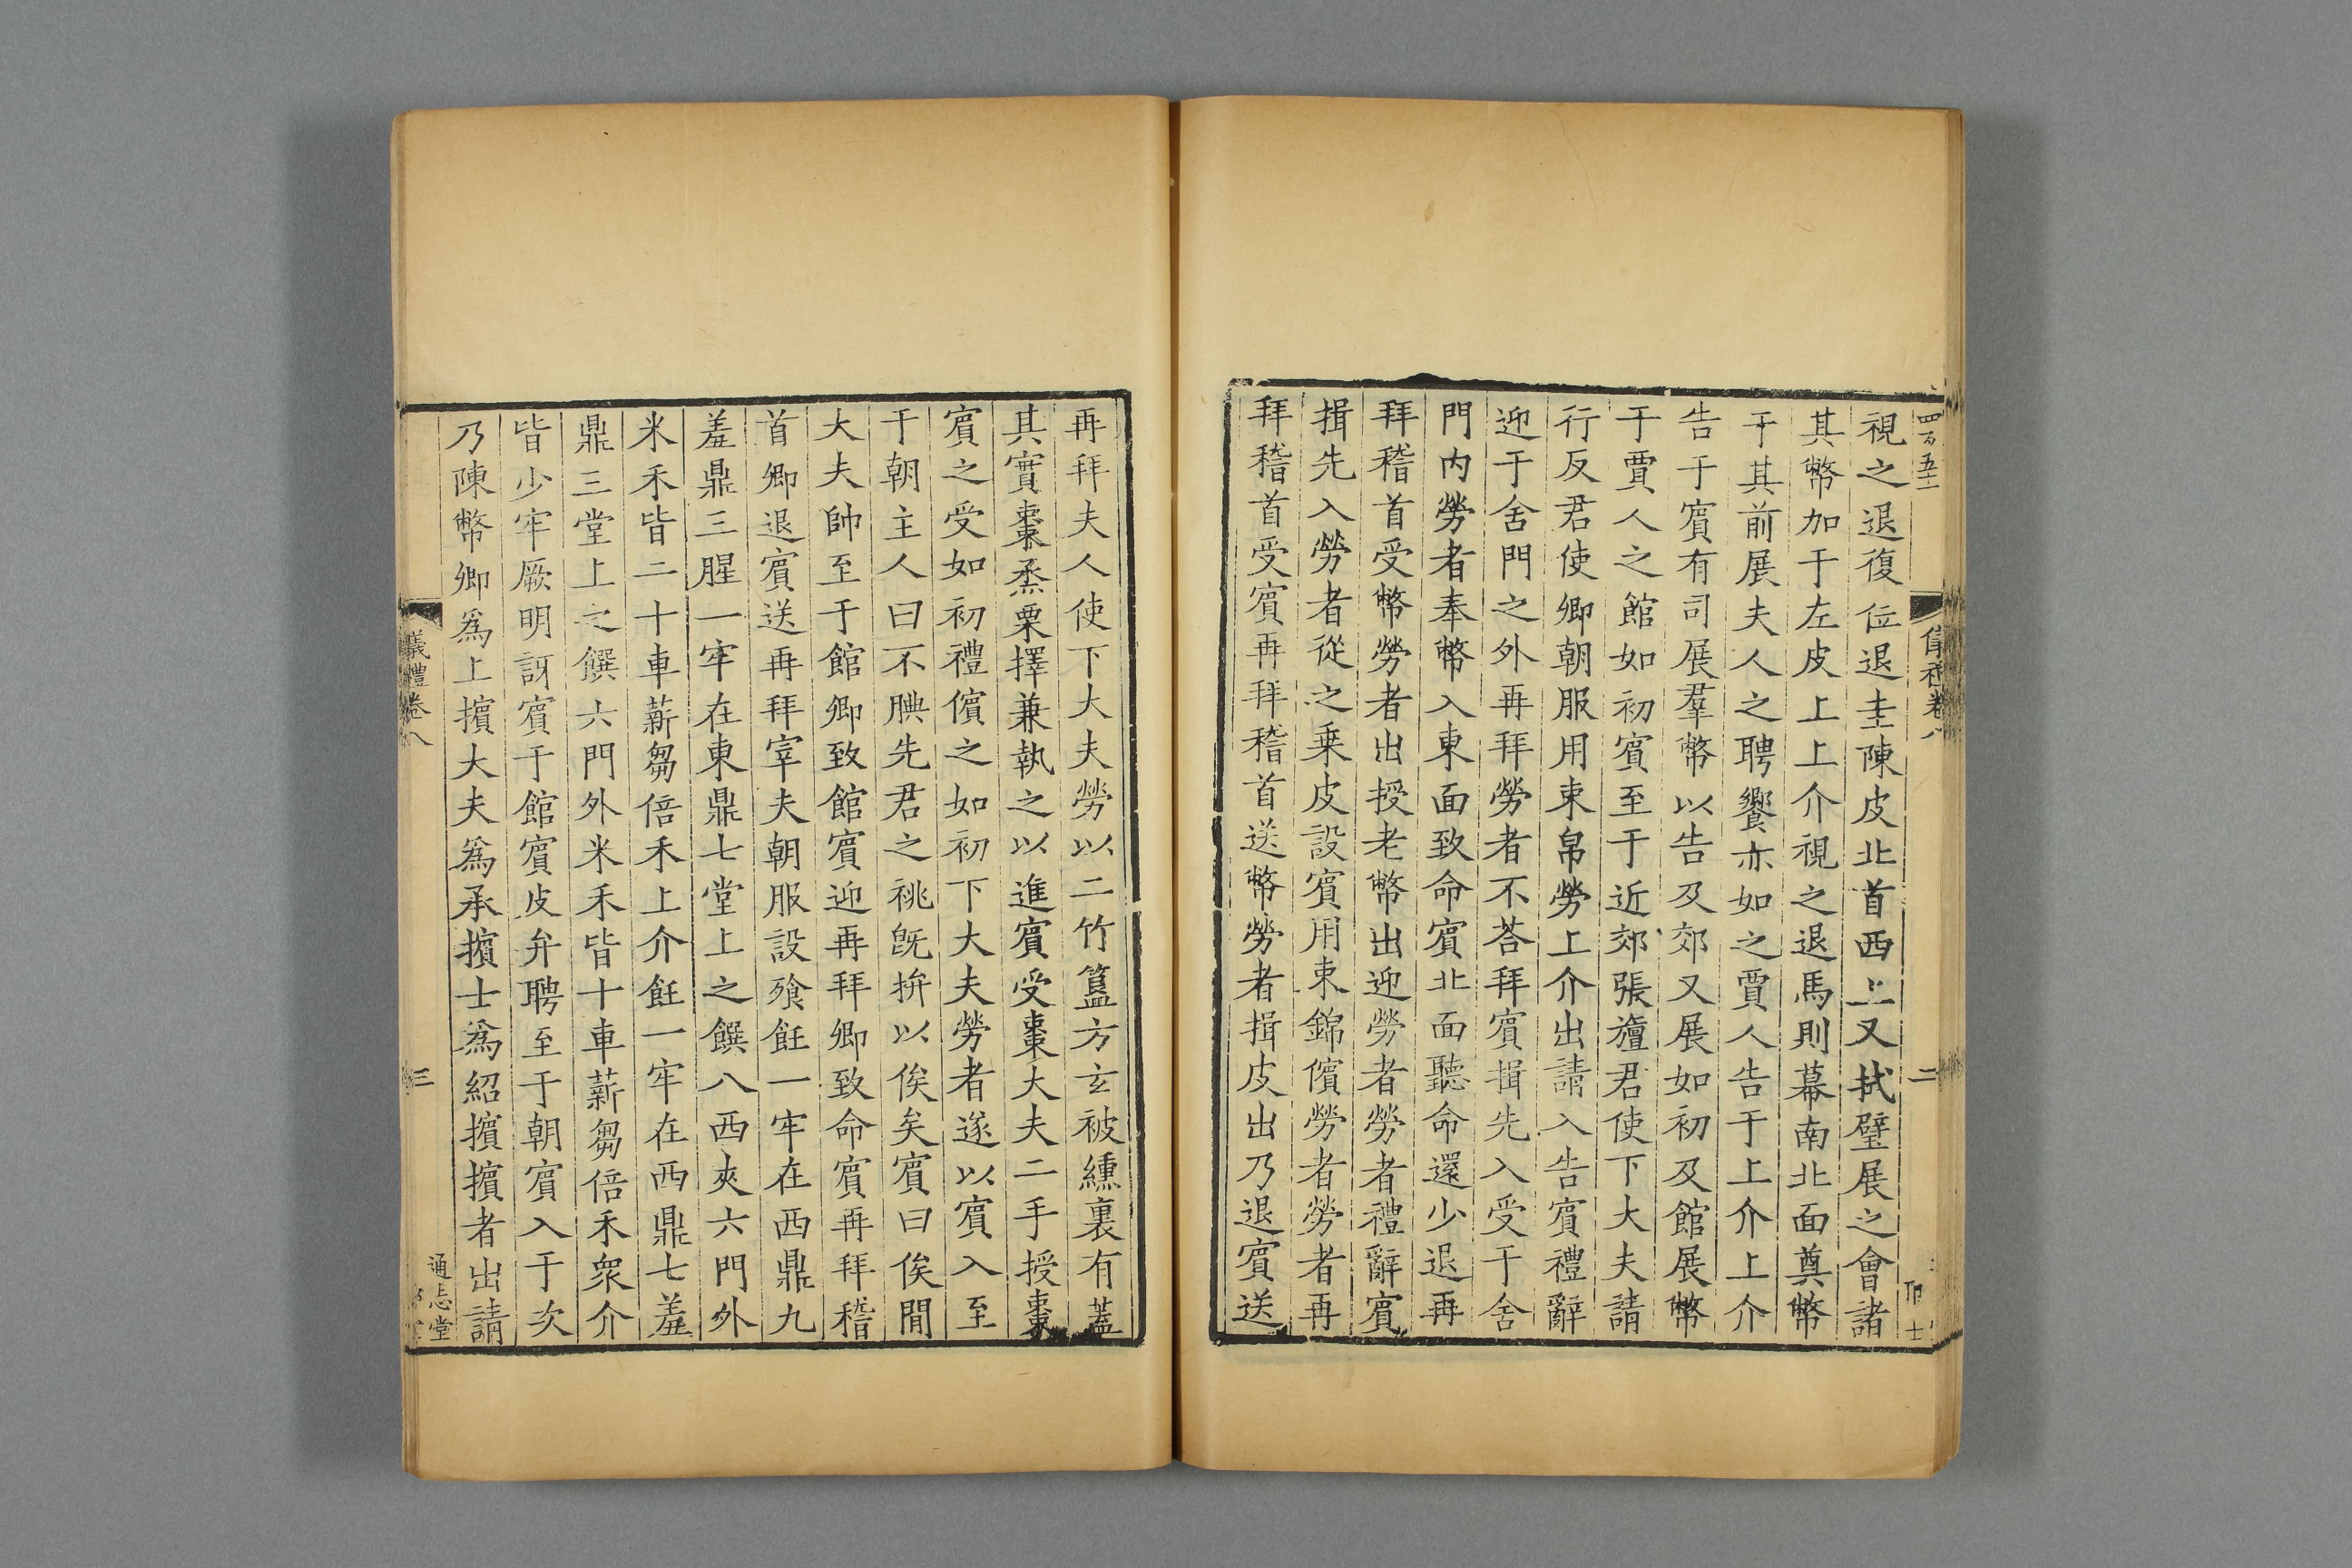 四百五十二
儀禮卷八
二
視之退復位退圭陳皮北首西上又拭璧展之會諸
其幣加于左皮上上介視之退馬則幕南北面奠幣
于其前展夫人之聘饗亦如之賈人告于上介上介
告于賔有司展羣幣以告及郊又展如初及館展幣
于賈人之館如初賔至于近郊張旜君使下大夫請
行反君使卿朝服用束帛勞上介出請入告賔禮辭
迎于舍門之外再拜勞者不荅拜賔揖先入受于舍
門内勞者奉幣入東面致命賔北面聽命還少退再
拜稽首受幣勞者出授老幣出迎勞者勞者禮辭賔
揖先入勞者從之乗皮設賔用束錦儐勞者勞者再
拜稽首受賔再拜稽首送幣勞者揖皮出乃退賔送
再拜夫人使下大夫勞以二竹簠方玄被纁裏有葢
其實棗烝栗擇兼執之以進賔受棗大夫二手授棗
賔之受如初禮儐之如初下大夫勞者遂以賔入至
于朝主人曰不腆先君之祧旣拚以俟矣賔曰俟閒
大夫帥至于館卿致館賔迎再拜卿致命賔再拜稽
首卿退賔送再拜宰夫朝服設飱飪一牢在西鼎九
羞鼎三腥一牢在東鼎七堂上之饌八西夾六門外
米禾皆二十車薪芻倍禾上介飪一牢在西鼎七羞
鼎三堂上之饌六門外米禾皆十車薪芻倍禾衆介
皆少牢厥明訝賔于館賔皮弁聘至于朝賔入于次
乃陳幣卿爲上擯大夫爲承擯士爲紹擯擯者出請
儀禮卷八
三
通志堂